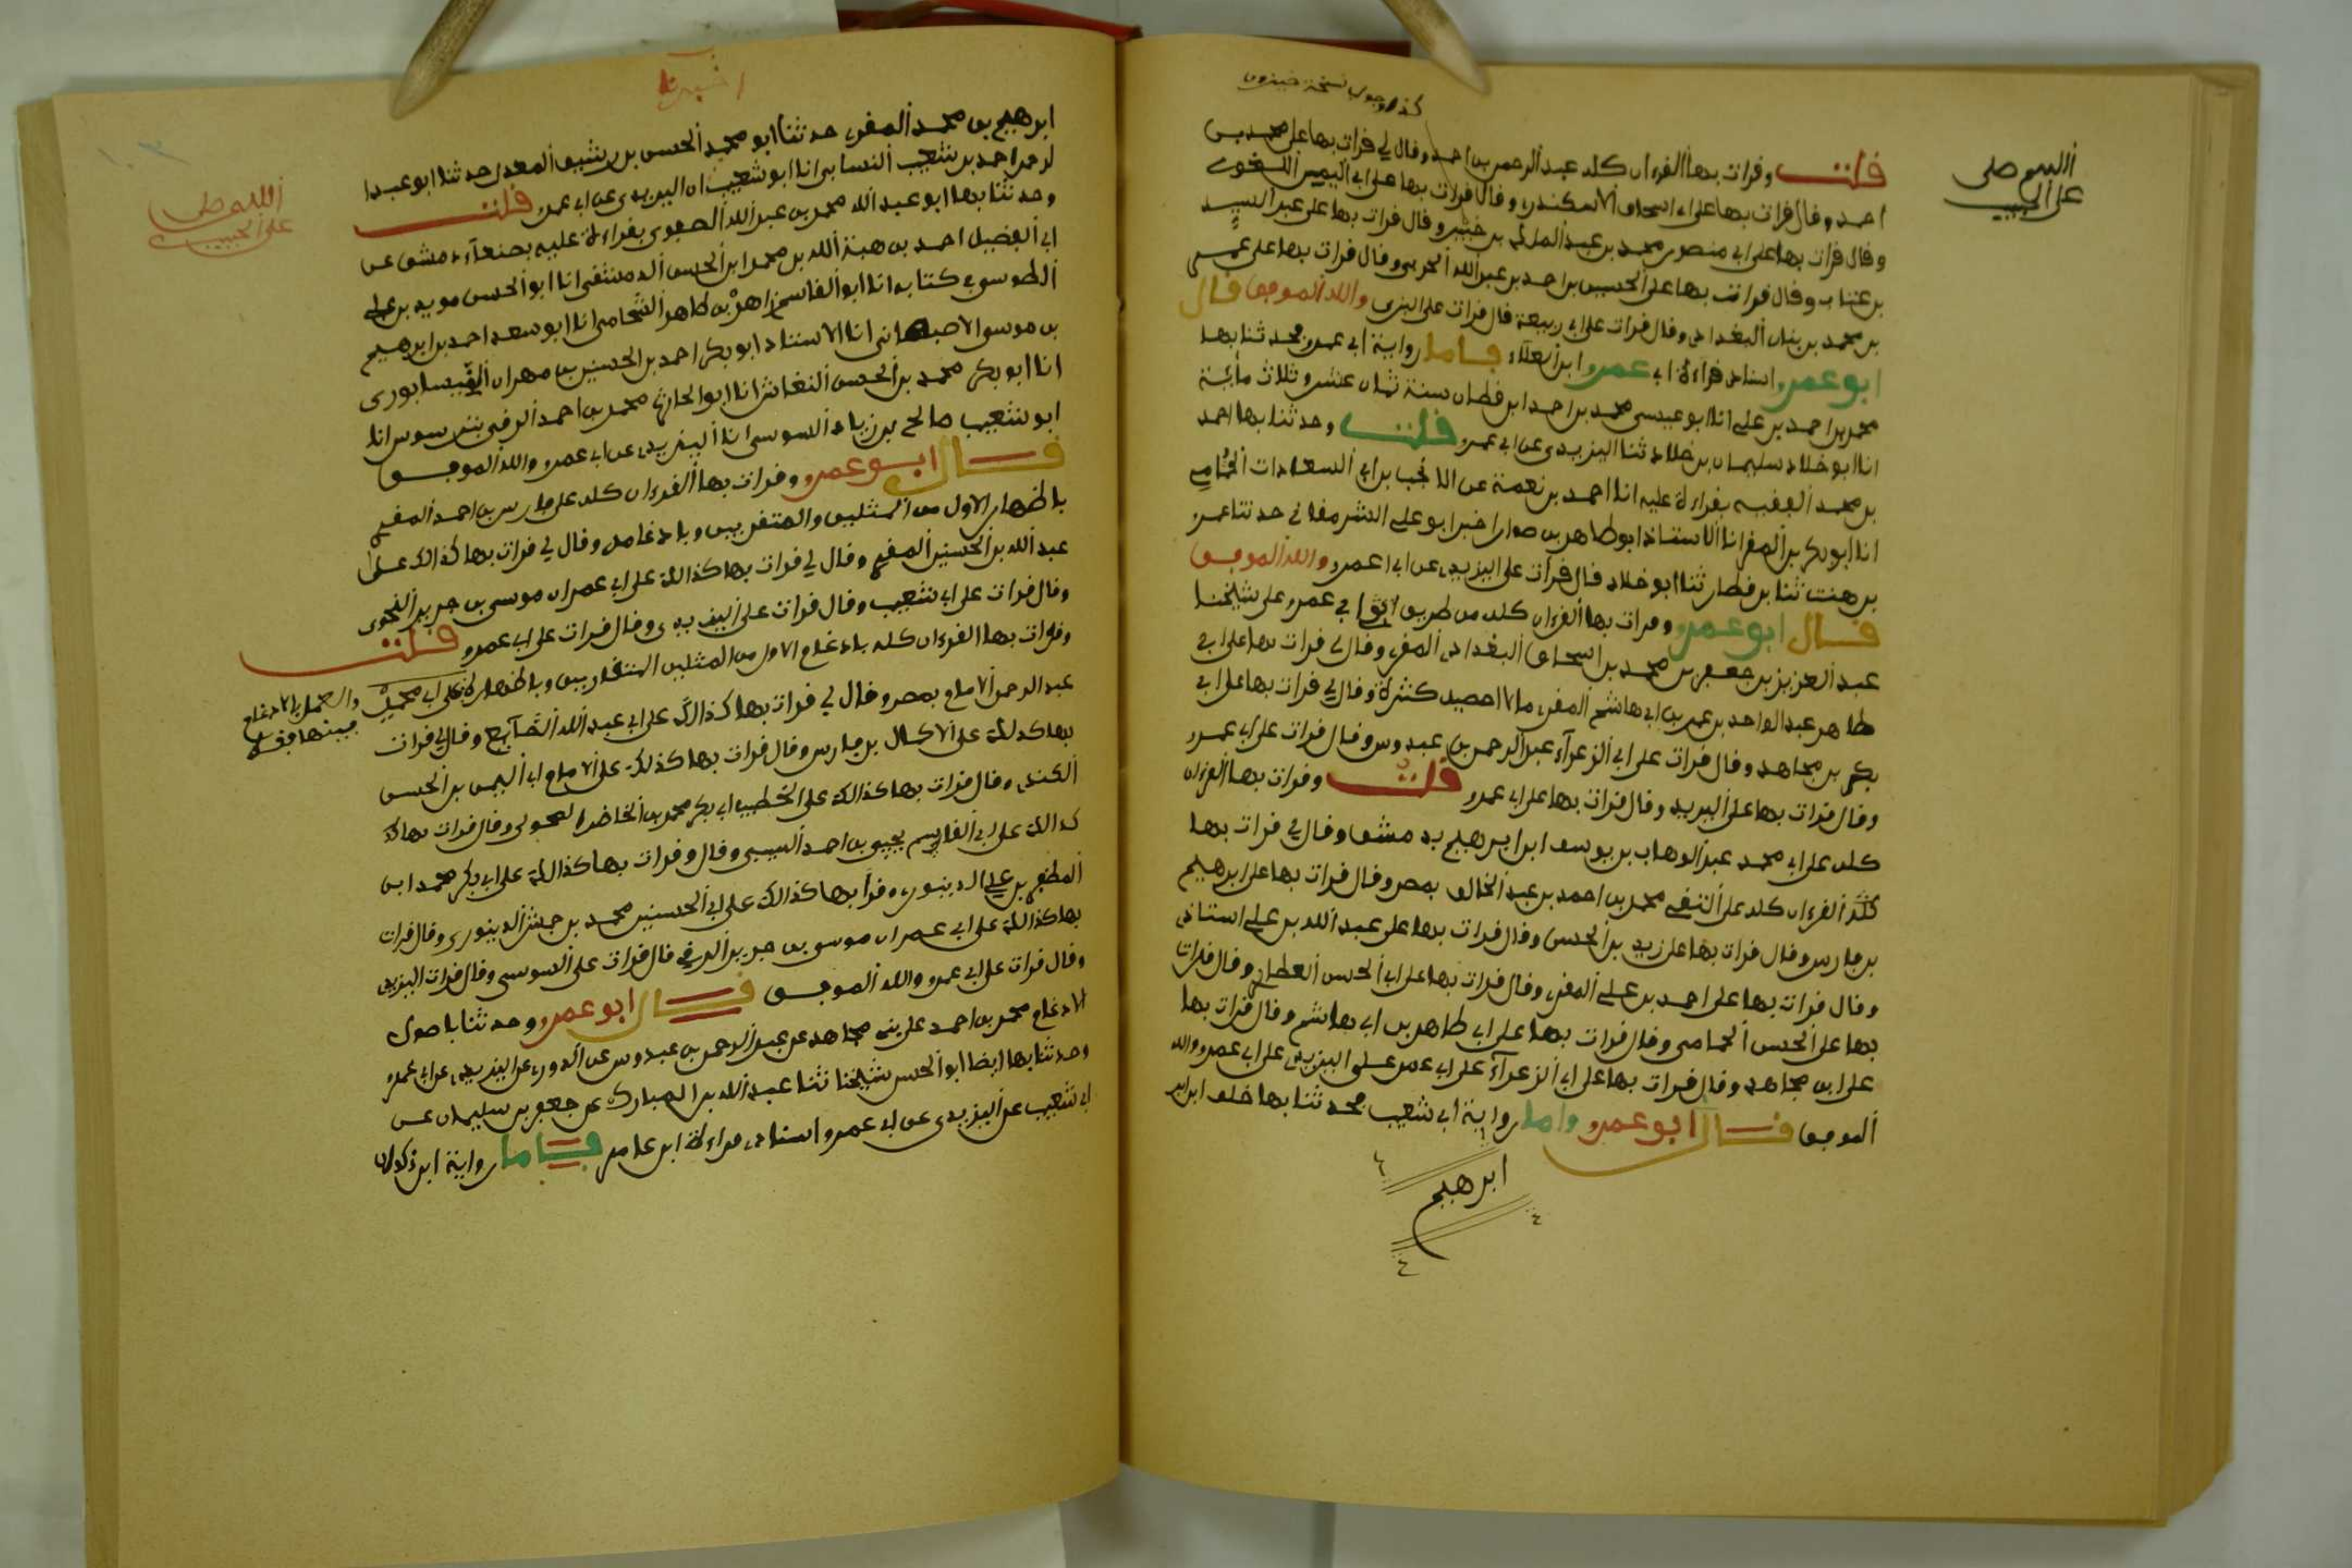 اللهم صلى
على الحبيب
قلت وقرات بها القرءان كله عبد الرحمن بن احمد وقال لي قرات بها على محمد بن
احمد وقال قرات بها على ابي اسحاق الاسكندري وقال قرات بها على ابي اليمن اللغوي
وقال قرات بها على ابي منصور محمد بن عبد الملك بن خيرون وقال قرات بها على عبد السيد
بن عتاب وقال قرات بها على الحسين بن احمد بن عبد الله الحربي وقال قرات بها على عمر
بن محمد بن بنان البغدادي وقال قرات على ابي ربيعة قال قرات على البزي والله الموفق قال
ابو عمرو اسناد قراءة ابي عمرو ابن العلاء فاما رواية ابي عمر فحدثنا بها
محمد بن احمد بن علي انا ابو عيسى محمد بن احمد ابن قطان سنة ثمان عشر وثلاث مائة
انا ابو خلاد سليمان بن خلاد ثنا اليزيدي عن ابي عمرو قلت وحدثنا بها احمد
بن محمد الفقيه بقراءة عليه انا احمد بن نعمة عن الانجب بن ابي السعادات الحمامي
انا ابو بكر بن المقرب انا الاستاذ ابو طاهر بن سوار اخبر ابو علي الشرمقاني حدثنا عمر
بن قطان ثنا ابو خلاد قال قرات على اليزيدي عن ابي عمرو والله الموفق
قال ابو عمرو وقرات بها القرءان كله من طريق ابي عمر على شيخنا
عبد العزيز بن جعفر بن محمد بن اسحاق البغدادي المقرء وقال لي قرات بها على ابي
طاهر عبد الواحد بن عمر بن ابي هاشم المقرء ما لا احصيه كثرة وقال لي قرات بها على ابي
بكر بن مجاهد وقال قرات على ابي الزعراء عبد الرحمن بن عبدوس وقال قرات على ابي عمر
وقال قرات بها على اليزيدي وقال قرات بها على ابي عمرو قلت وقرات بها القرءان
كله على ابي محمد عبد الوهاب بن يوسف ابن ابراهيم بدمشق وقال لي قرات بها
القرءان كله على التقي محمد بن احمد بن عبد الخالق بمصر وقال قرات بها على ابرهيم
بن فارس وقال قرات بها على زيد بن الحسن وقال قرات بها على عبد الله بن علي استاذي
وقال قرات بها على احمد بن علي المقرء وقال قرات بها على ابي الحسن العطار وقال قرات
بها على الحسن الحمامي وقال قرات بها على ابي طاهر بن ابي هاشم وقال قرات بها
على ابن مجاهد وقال قرات بها على ابي الزعراء على ابي عمر على اليزيدي على ابي عمرو والله
الموفق قال ابو عمرو واما رواية ابي شعيب فحدثنا بها خلف ابن
ابرهيم
اللهم صل
على الحبيب
ابرهيم بن محمد المقرء حدثنا ابو محمد الحسن بن رشيق المعدل حدثنا ابو عبد ا
لرحمن احمد بن شعيب النسائي انا ابو شعيب انا اليزيدي عن ابي عمرو قلت
وحدثنا بها ابو عبد الله محمد بن عبد الله الصفوي بقراءة عليه بصنعاء دمشق عن
ابي الفضل احمد بن هبة الله بن محمد ابن الحسن الدمشقي انا ابو الحسن مويد بن علي
الطوسي في كتابه انا ابو القاسم زاهر بن طاهر الشحامي انا ابو سعد احمد بن ابرهيم
بن موسى الاصبهاني انا الاستاذ ابو بكر احمد بن الحسين بن مهران النيسابوري
انا ابو بكر محمد بن الحسن النقاش انا ابو الحارث محمد بن احمد الرقي بسوس انا
ابو شعيب صالح بن زياد السوسي انا اليزيدي عن ابي عمرو والله الموفق
قال ابو عمرو وقرات بها القرءان كله على فارس بن احمد المقرء
باظهار الاول من المثلين والمتقربين وبادغامه وقال لي قرات بها كذالك على
عبد الله بن الحسين المقرء وقال لي قرات بها كذالك على ابي عمران موسى بن جرير النحوي
وقال قرات على ابي شعيب وقال قرات على اليزيدي وقال قرات على ابي عمرو قلت
وقرات بها القرءان كله بادغام الاول من المثلين المتقاربين وباظهاره على ابي محمد
عبد الرحمن الامام بمصر وقال لي قرات بها كذالك على ابي عبد الله الصايغ وقال لي قرات
بها كذلك على الكمال بن فارس وقال قرات بها كذلك على الامام ابي اليمن بن الحسن
الكندي وقال قرات بها كذالك على الخطيب ابي بكر محمد بن وقال قرات بها
كذالك على ابي القاسم يحيى بن احمد السيبي وقال وقرات بها كذالك على ابي بكر محمد ابن
المظفر بن علي الدينوري وقرا بها كذالك على ابي الحسين محمد بن حبش الدينوري وقال قرات
بها كذالك على ابي عمران موسى بن جرير الرقي قال قرات على السوسي وقال قرات اليزيدي
وقال قرات على ابي عمرو والله الموفق قال ابو عمرو وحدثنا باصول
الادغام محمد بن احمد على بن مجاهد عن عبد الرحمن بن عبدوس عن الدوري عن اليزيدي عن ابي عمرو
وحدثنا بها ايضا ابو الحسن شيخنا ثنا عبد الله بن المبارك عن جعفر بن سليمان عن
ابي شعيب عن اليزيدي عن ابي عمرو اسناد قراءة ابن عامر فاما رواية ابن ذكوان